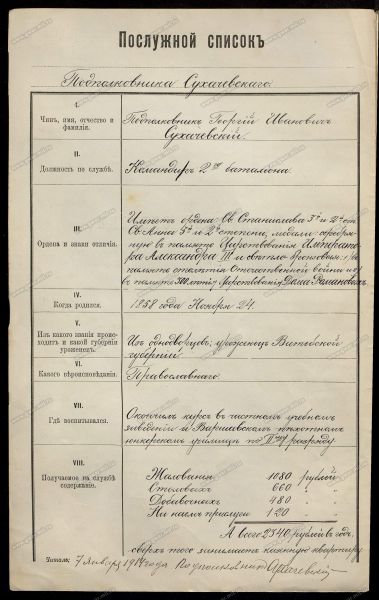 Послужной списокъ
Подполковника Сухачевскаго.
I.
Чинъ, имя, отчество и фамилія.
Подполковникъ Георгій Ивановичъ
Сухачевскій.
II.
Должность по службѣ.
Командиръ 2го баталіона.
III.
Ордена и знаки отличія.
Имѣетъ ордена: Св. Станислава 3й и 2й ст.
Св. Анны 3й и 2й степени, медали: серебря-
ную въ память Царствованія Императо-
ра Александра III и свѣтло-бронзовыя: въ
память столѣтія Отечественной войны и
въ память 300-лѣтія Царствованія Дома Романовыхъ
IV.
Когда родился.
1858 года Ноября 24.
V.
Изъ какого званія проис-
ходитъ и какой губерніи
уроженецъ.
Изъ однодворцевъ; уроженецъ Витебской
губерніи.
VI.
Какого вѣроисповѣданія.
Православнаго.
VII.
Гдѣ воспитывался.
Окончилъ курсъ въ частномъ учебномъ
заведеніи и Варшавскомъ пѣхотномъ
юнкерскомъ училищѣ по II му разряду
VIII.
Получаемое на службѣ
содержаніе.
Жалованья 1080 рублей
Столовыхъ 660 "
Добавочныхъ 480 "
На наемъ прислуги 120 "
А всего 2340 рублей въ годъ,
сверхъ того занимаетъ казенную квартиру
Читалъ: 7 Января 1914 года Подполковникъ Сухачевскій